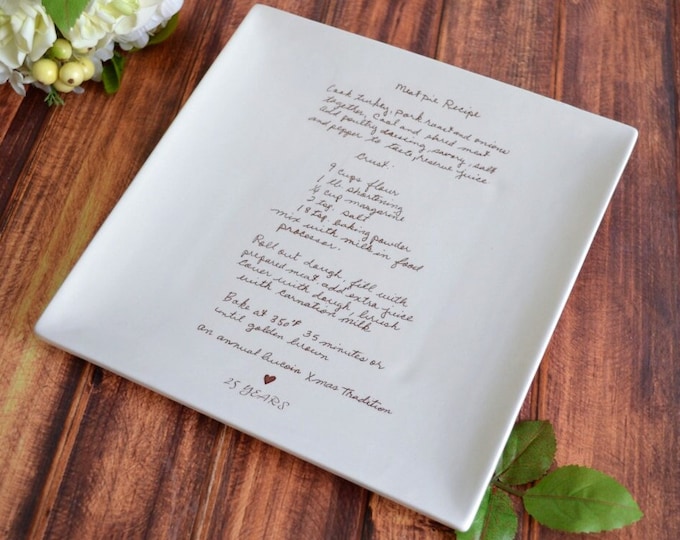 Meat pie Recipe
Cook turkey, pork roast and onions
together, Cool and shred meat
add poultry dressing savory, salt
and pepper to taste, reserve juice
Crust:
9 cups flour
1 lb. shortening
½ cup margarine
2 tsp. salt
18 tsp. baking powder
mix with milk in food
processor.
Roll out dough, fill with
prepared meat add extra juice
cover with dough, brush
with carnation milk
Bake at 350° 35 minutes or
until golden brown
an annual Aucoin Xmas Tradition
25 YEARS